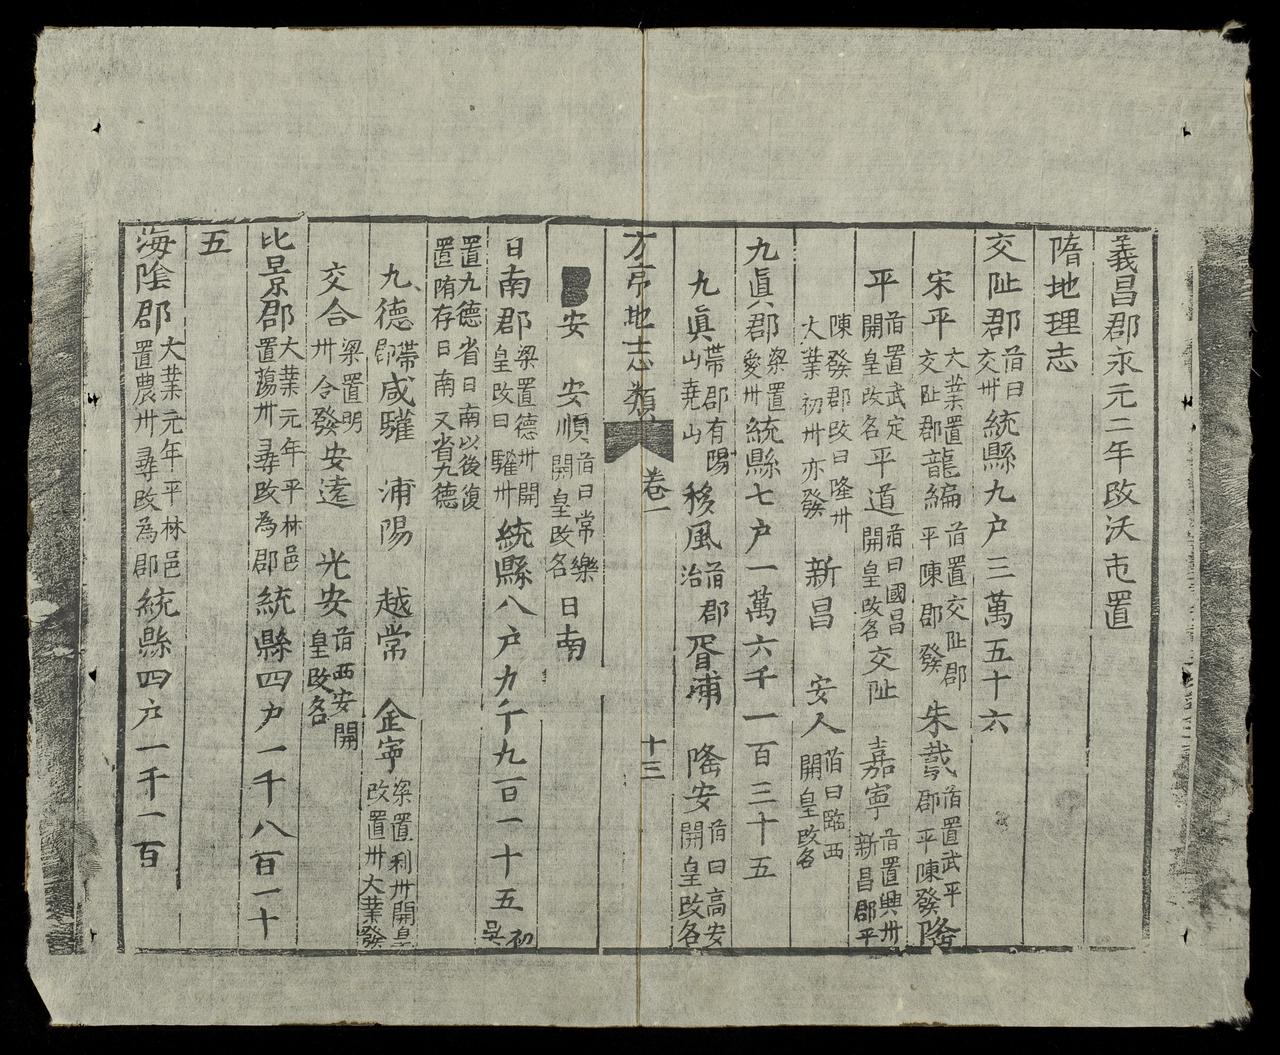 義昌郡永元二年改沃屯置
隋地理志
交趾郡舊曰交州統縣九户三萬五十六
宋平大業置交趾郡龍編舊置交趾郡平陳郡發朱䳒舊置武平郡平陳發隆
平舊置武定開皇改名平道舊曰國昌開皇改名交趾 嘉寧舊置興州新昌郡平
陳發郡改曰隆州大業初州亦發 新昌 安人舊曰臨西開皇改名
九眞郡梁置愛州統縣七户一萬六千一百三十五
九眞帶郡有陽山堯山移風舊郡治胥浦 隆安舊曰高安開皇改名
方亭地志類 卷一 十三
安 安順舊曰常樂開皇改名日南
日南郡梁置德州開皇改曰驩州統縣八户九千九百一十五初吳
置九德省日南以後復置隋存日南又省九德
九德帶郡咸驩 浦陽 越常 金寧梁置利州開皇改置州大業發
交合梁置明州合發安遠 光安舊西安開皇改名
比景郡大業元年平林邑置蕩州尋改為郡統縣四户一千八百一十
五
海陰郡大業元年平林邑置農州尋改為郡統縣四户一千一百